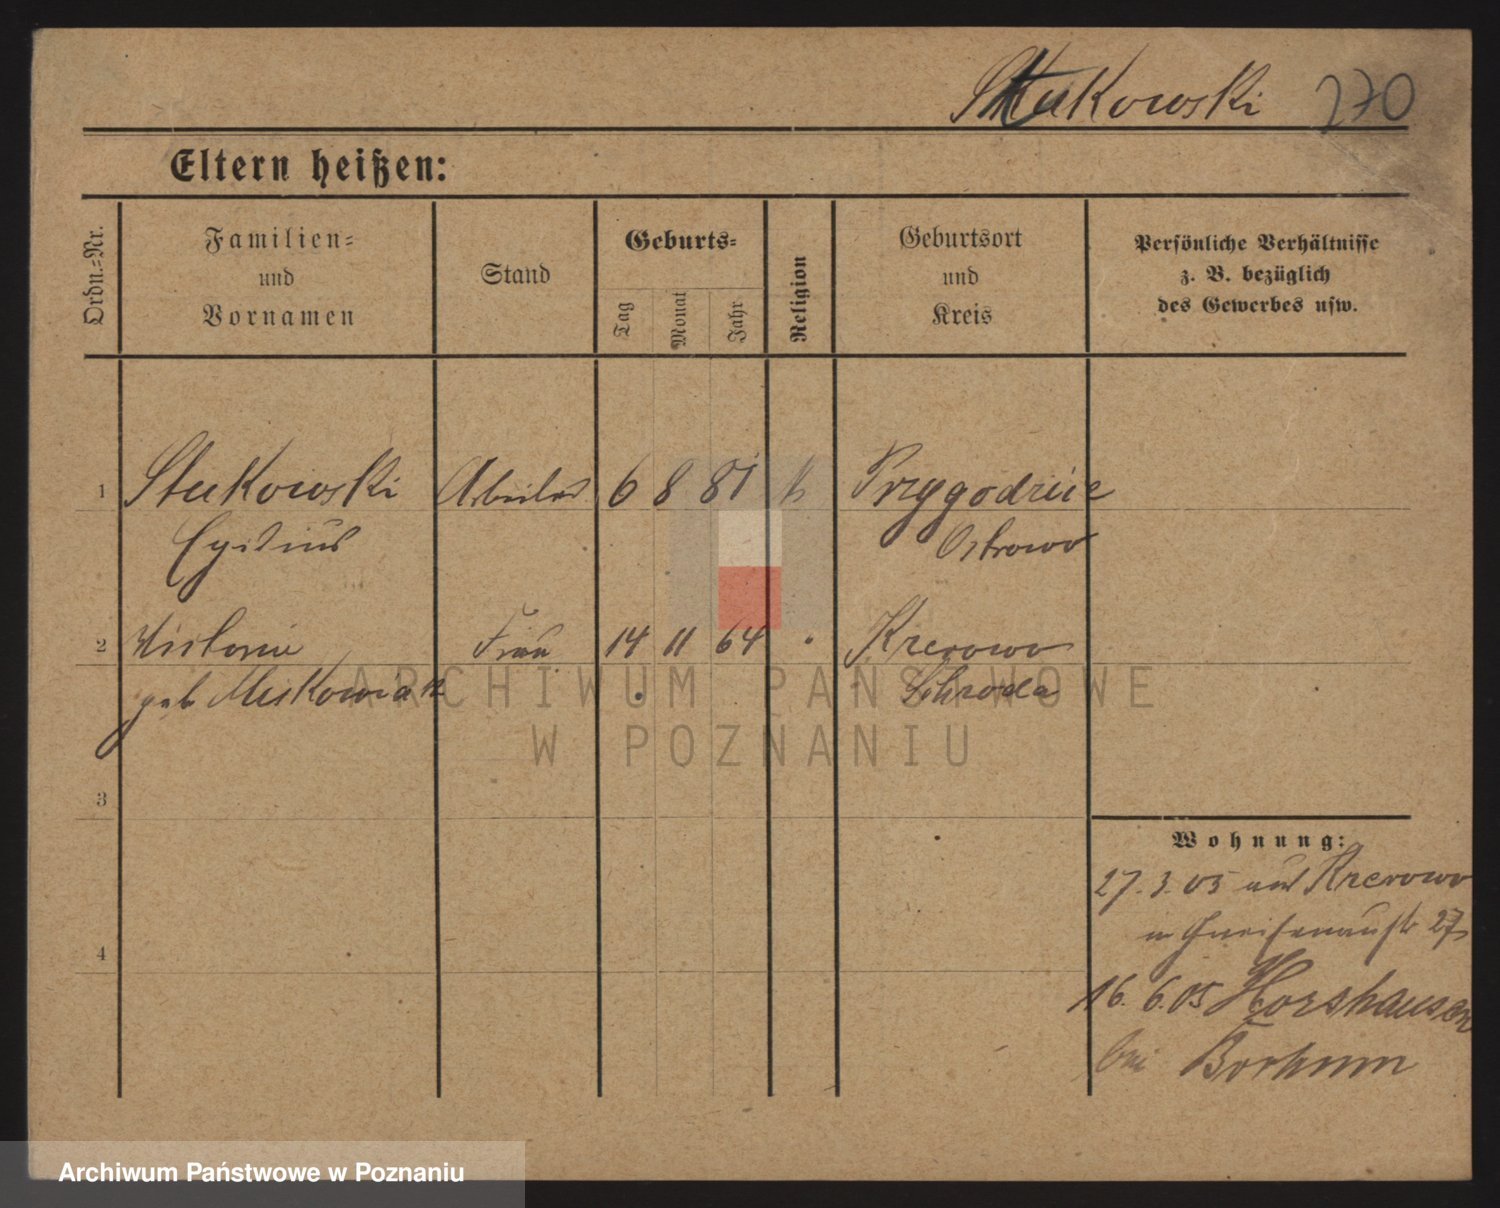 Stukowski 270
Eltern heißen:
Ordn.-Nr.
Familien-
und
Vornamen
Stand
Geburts-
Tag
Monat
Jahr
Religion
Geburtsort
und
Kreis
Persönliche Verhältnisse
z. B. bezüglich
des Gewerbes usw.
1 Stukowski Arbeiter 6 8 81 k Przygodzice
Egidius Ostrowo
2 Victoria Frau 14 11 64 " Krerowo
geb Miskowiak Schroda
3
4
Wohnung:
27. 3. 05 aus Krerowo
n Gneisenaustr 27
16. 6. 05 Horshausen
bei Bochum
ARCHIWUM PAŃSTWOWE
W POZNANIU
Archiwum Państwowe w Poznaniu